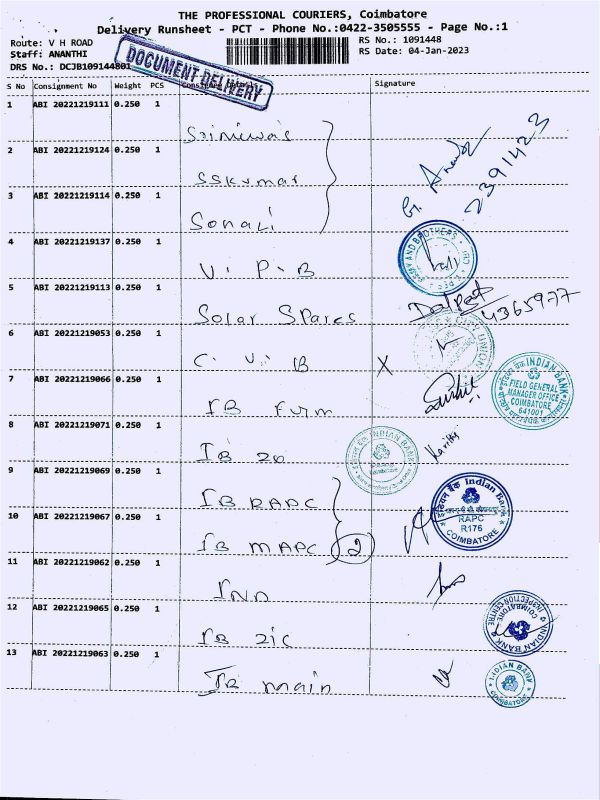 THE PROFESSIONAL COURIERS, Coimbatore
Delivery Runsheet - PCT - Phone No.:0422-3505555 - Page No.:1
Route: V H ROAD
RS No.: 1091448
Staff: ANANTHI
RS Date: 04-Jan-2023
DRS No.: DCJB109144801
DOCUMENT DELIVERY
S No Consignment No Weight PCS Signature
1 ABI 20221219111 0.250 1 Srinivvas
2 ABI 20221219124 0.250 1 SSKumar
3 ABI 20221219114 0.250 1 Sonali
4 ABI 20221219137 0.250 1 V. P. B
5 ABI 20221219113 0.250 1 Solar Spares
4365977
6 ABI 20221219053 0.250 1 C. V. B X
7 ABI 20221219066 0.250 1 IB Fgm
INDIAN BANK
FIELD GENERAL
MANAGER OFFICE
COIMBATORE
641001
8 ABI 20221219071 0.250 1 IB Zo
INDIAN BANK
9 ABI 20221219069 0.250 1 IB RAPC
इंडियन बैंक Indian Bank
RAPC
R176
COIMBATORE
10 ABI 20221219067 0.250 1 IB MAPC 2
11 ABI 20221219062 0.250 1 IND
12 ABI 20221219065 0.250 1 IB ZIC
INDIAN BANK
INSPECTION CENTRE
COIMBATORE
13 ABI 20221219063 0.250 1 IB main
INDIAN BANK
COIMBATORE